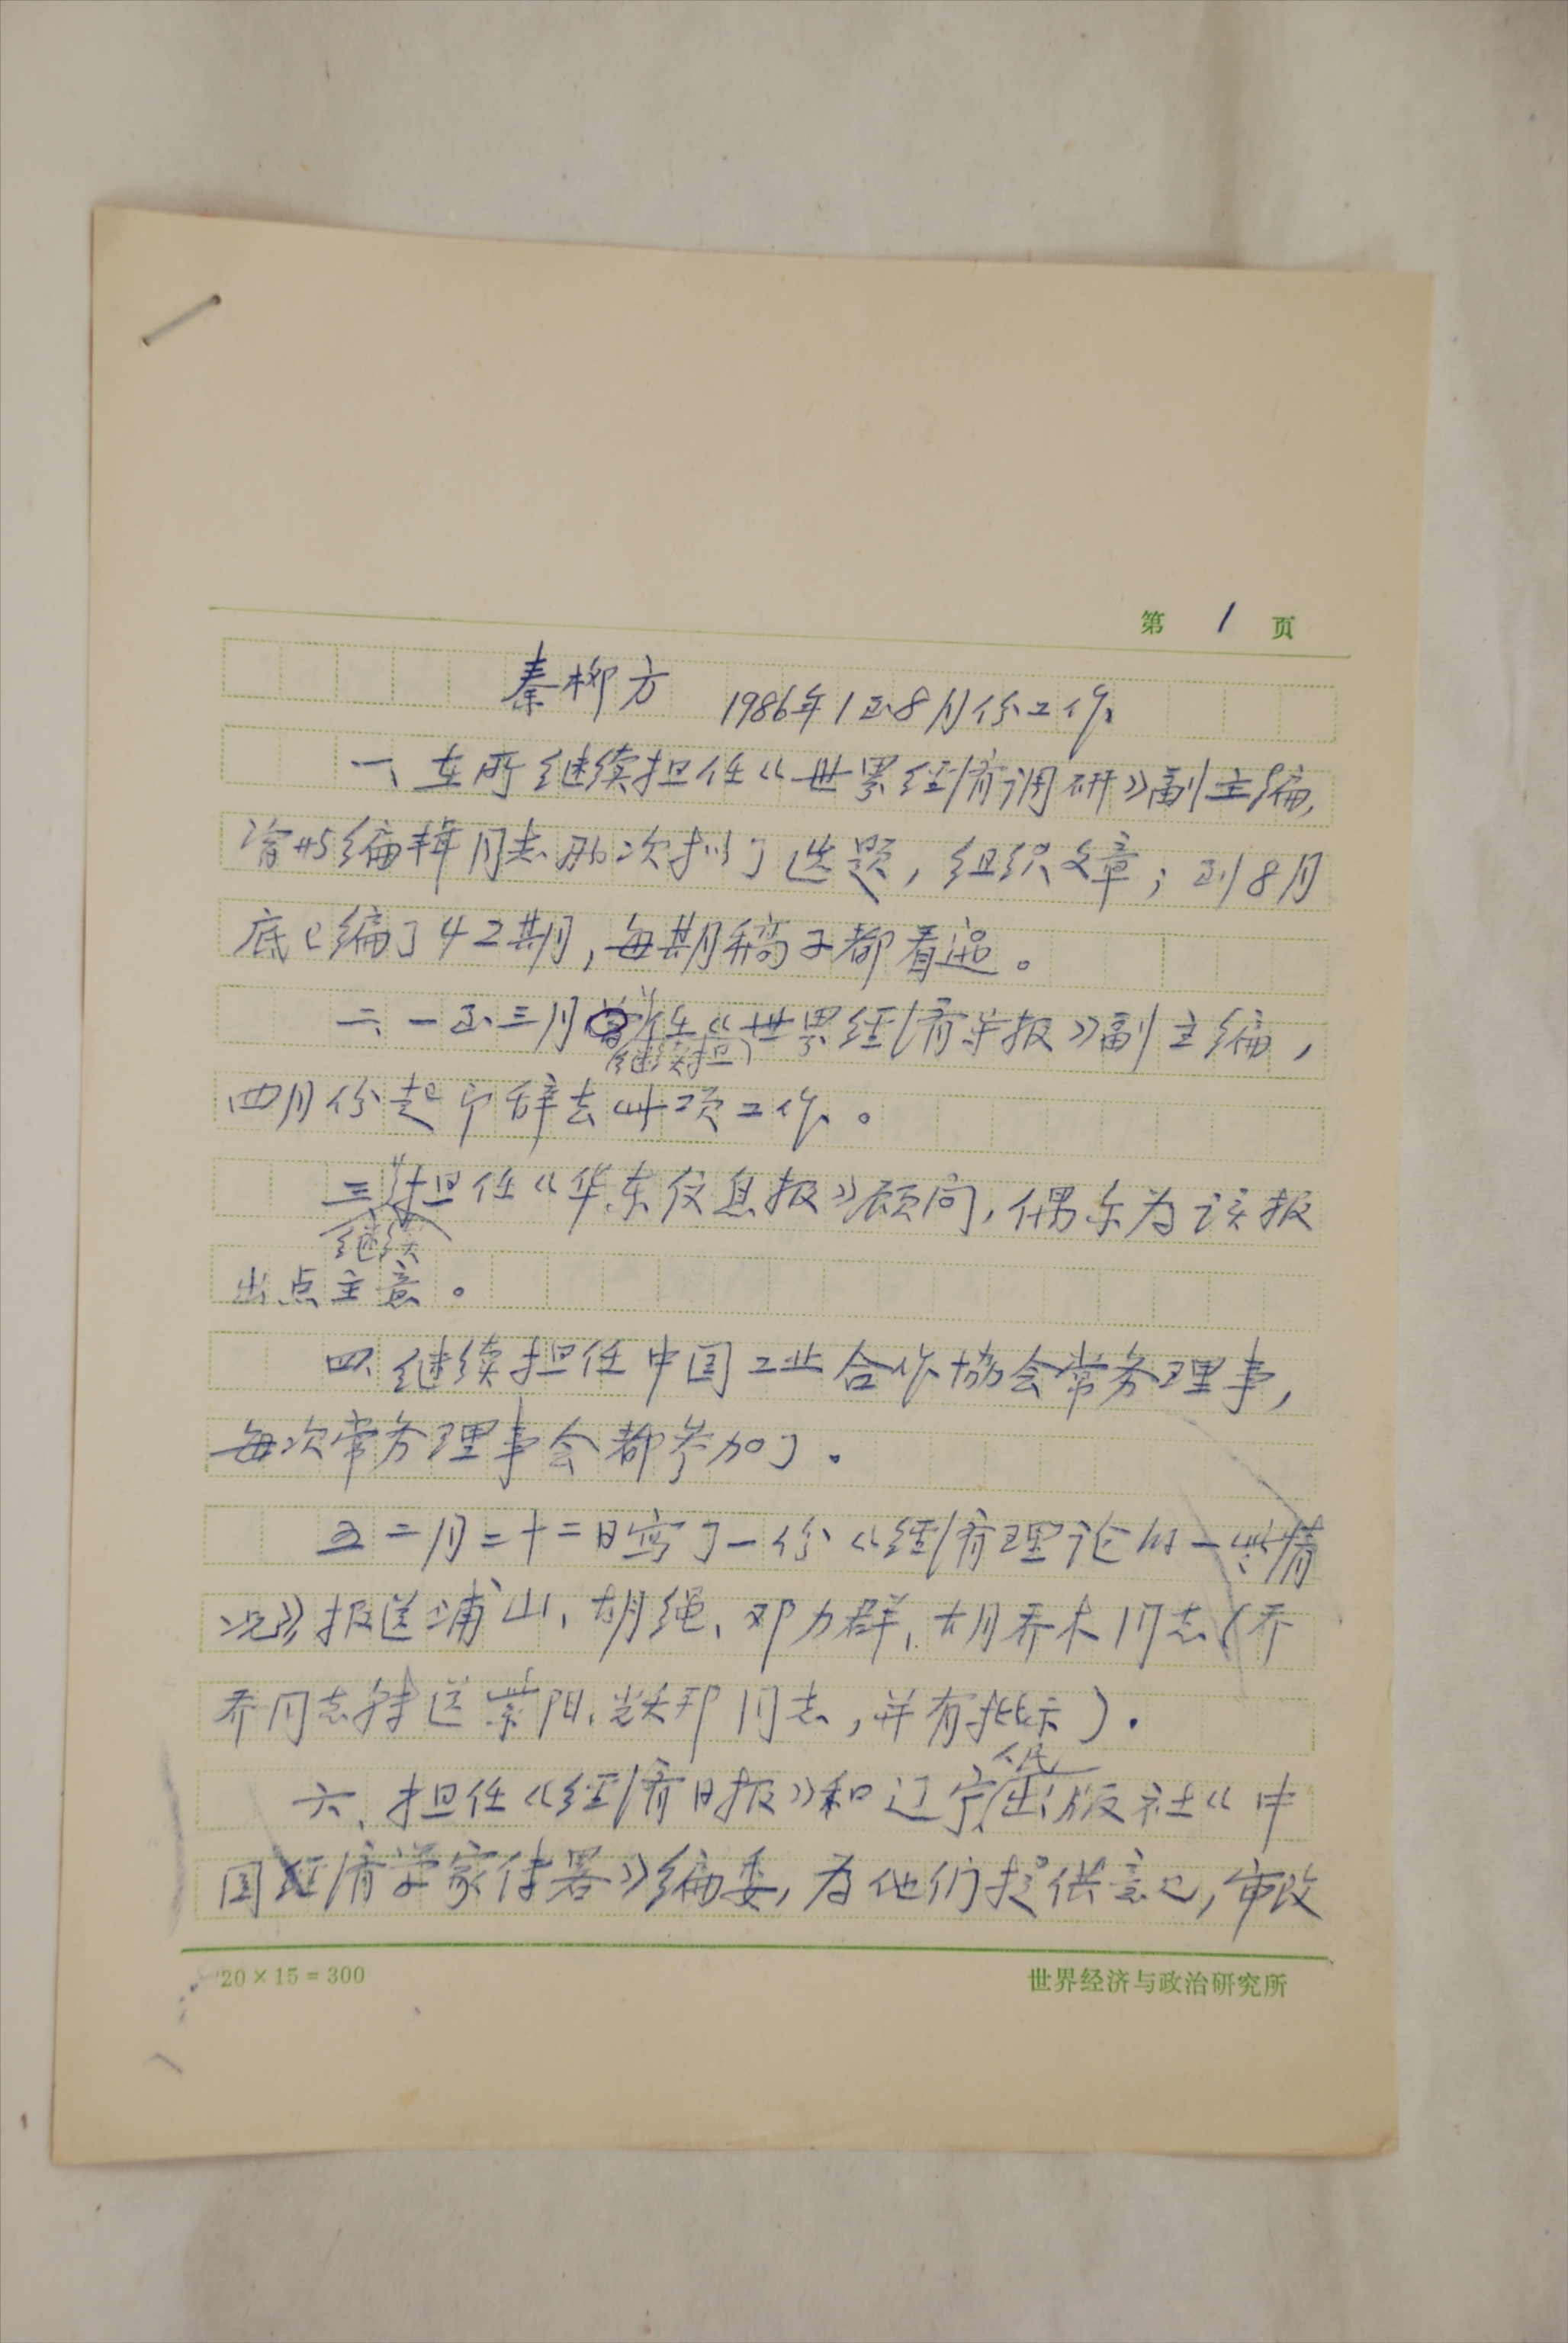 第 1 页
秦柳方 1986年1至8月份工作
一、在所继续担任《世界经济调研》副主编,
编辑同志 次拟了选题，组织文章；到8月
底已编了42期，每期稿子都看过。
二、一至三月 继续担任《世界经济导报》副主编，
四月份起 辞去此项工作。
三、继续担任《华东信息报》顾问，偶尔为该报
出点主意。
四、继续担任中国工业合作协会常务理事，
每次常务理事会都参加了.
五 二月二十二日写了一份《经济理论的一些情
况》报送浦山、胡绳、邓力群、胡乔木同志(乔
乔同志转送紫阳、耀邦同志，并有批示).
六、担任《经济日报》和辽宁人民出版社《中
国经济学家传略》编委，为他们提供意见，审改
20×15=300
世界经济与政治研究所